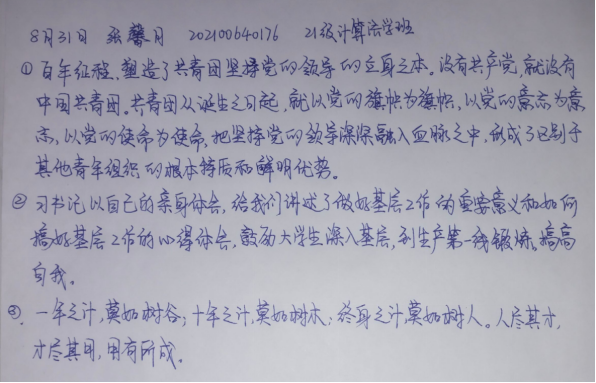 8月31日 张馨月 202100640176 21级计算法学班
① 百年征程，塑造了共青团坚持党的领导的立身之本。没有共产党，就没有
中国共青团。共青团从诞生之日起，就以党的旗帜为旗帜，以党的意志为意
志，以党的使命为使命，把坚持党的领导深深融入血脉之中，形成了区别于
其他青年组织的根本特质和鲜明优势。
② 习书记以自己的亲身体会，给我们讲述了做好基层工作的重要意义和如何
搞好基层工作的心得体会，鼓励大学生深入基层，到生产第一线锻炼。搞高
自我。
③. 一年之计，莫如树谷；十年之计，莫如树木；终身之计，莫如树人。人尽其才，
才尽其用，用有所成。